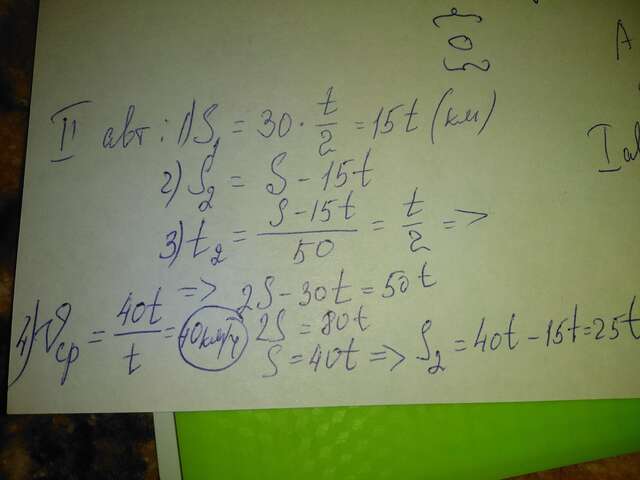 {0}
A
II авт: 1) S₁ = 30 · t/2 = 15t (км)
I ав
2) S₂ = S - 15t
3) t₂ = (S - 15t)/50 = t/2 =>
=> 2S - 30t = 50t
4) Vср = 40t/t = 40км/ч
2S = 80t
S = 40t => S₂ = 40t - 15t = 25t